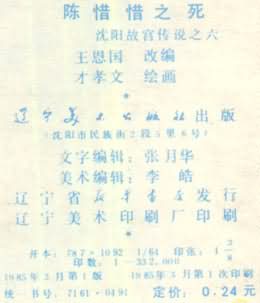 陈惜惜之死
沈阳故宫传说之六
王恩国 改编
才孝文 绘画
*
辽宁美术出版社出版
(沈阳市民族街2段5里6号)
文字编辑：张月华
美术编辑：李皓
辽宁省新华书店发行
辽宁美术印刷厂印刷
*
开本：787×1092 1/64 印张：1 3/8
印数：1—332,000
1985年3月第1版 1985年3月第1次印刷
统一书号：7161·0491 定价：0.24元